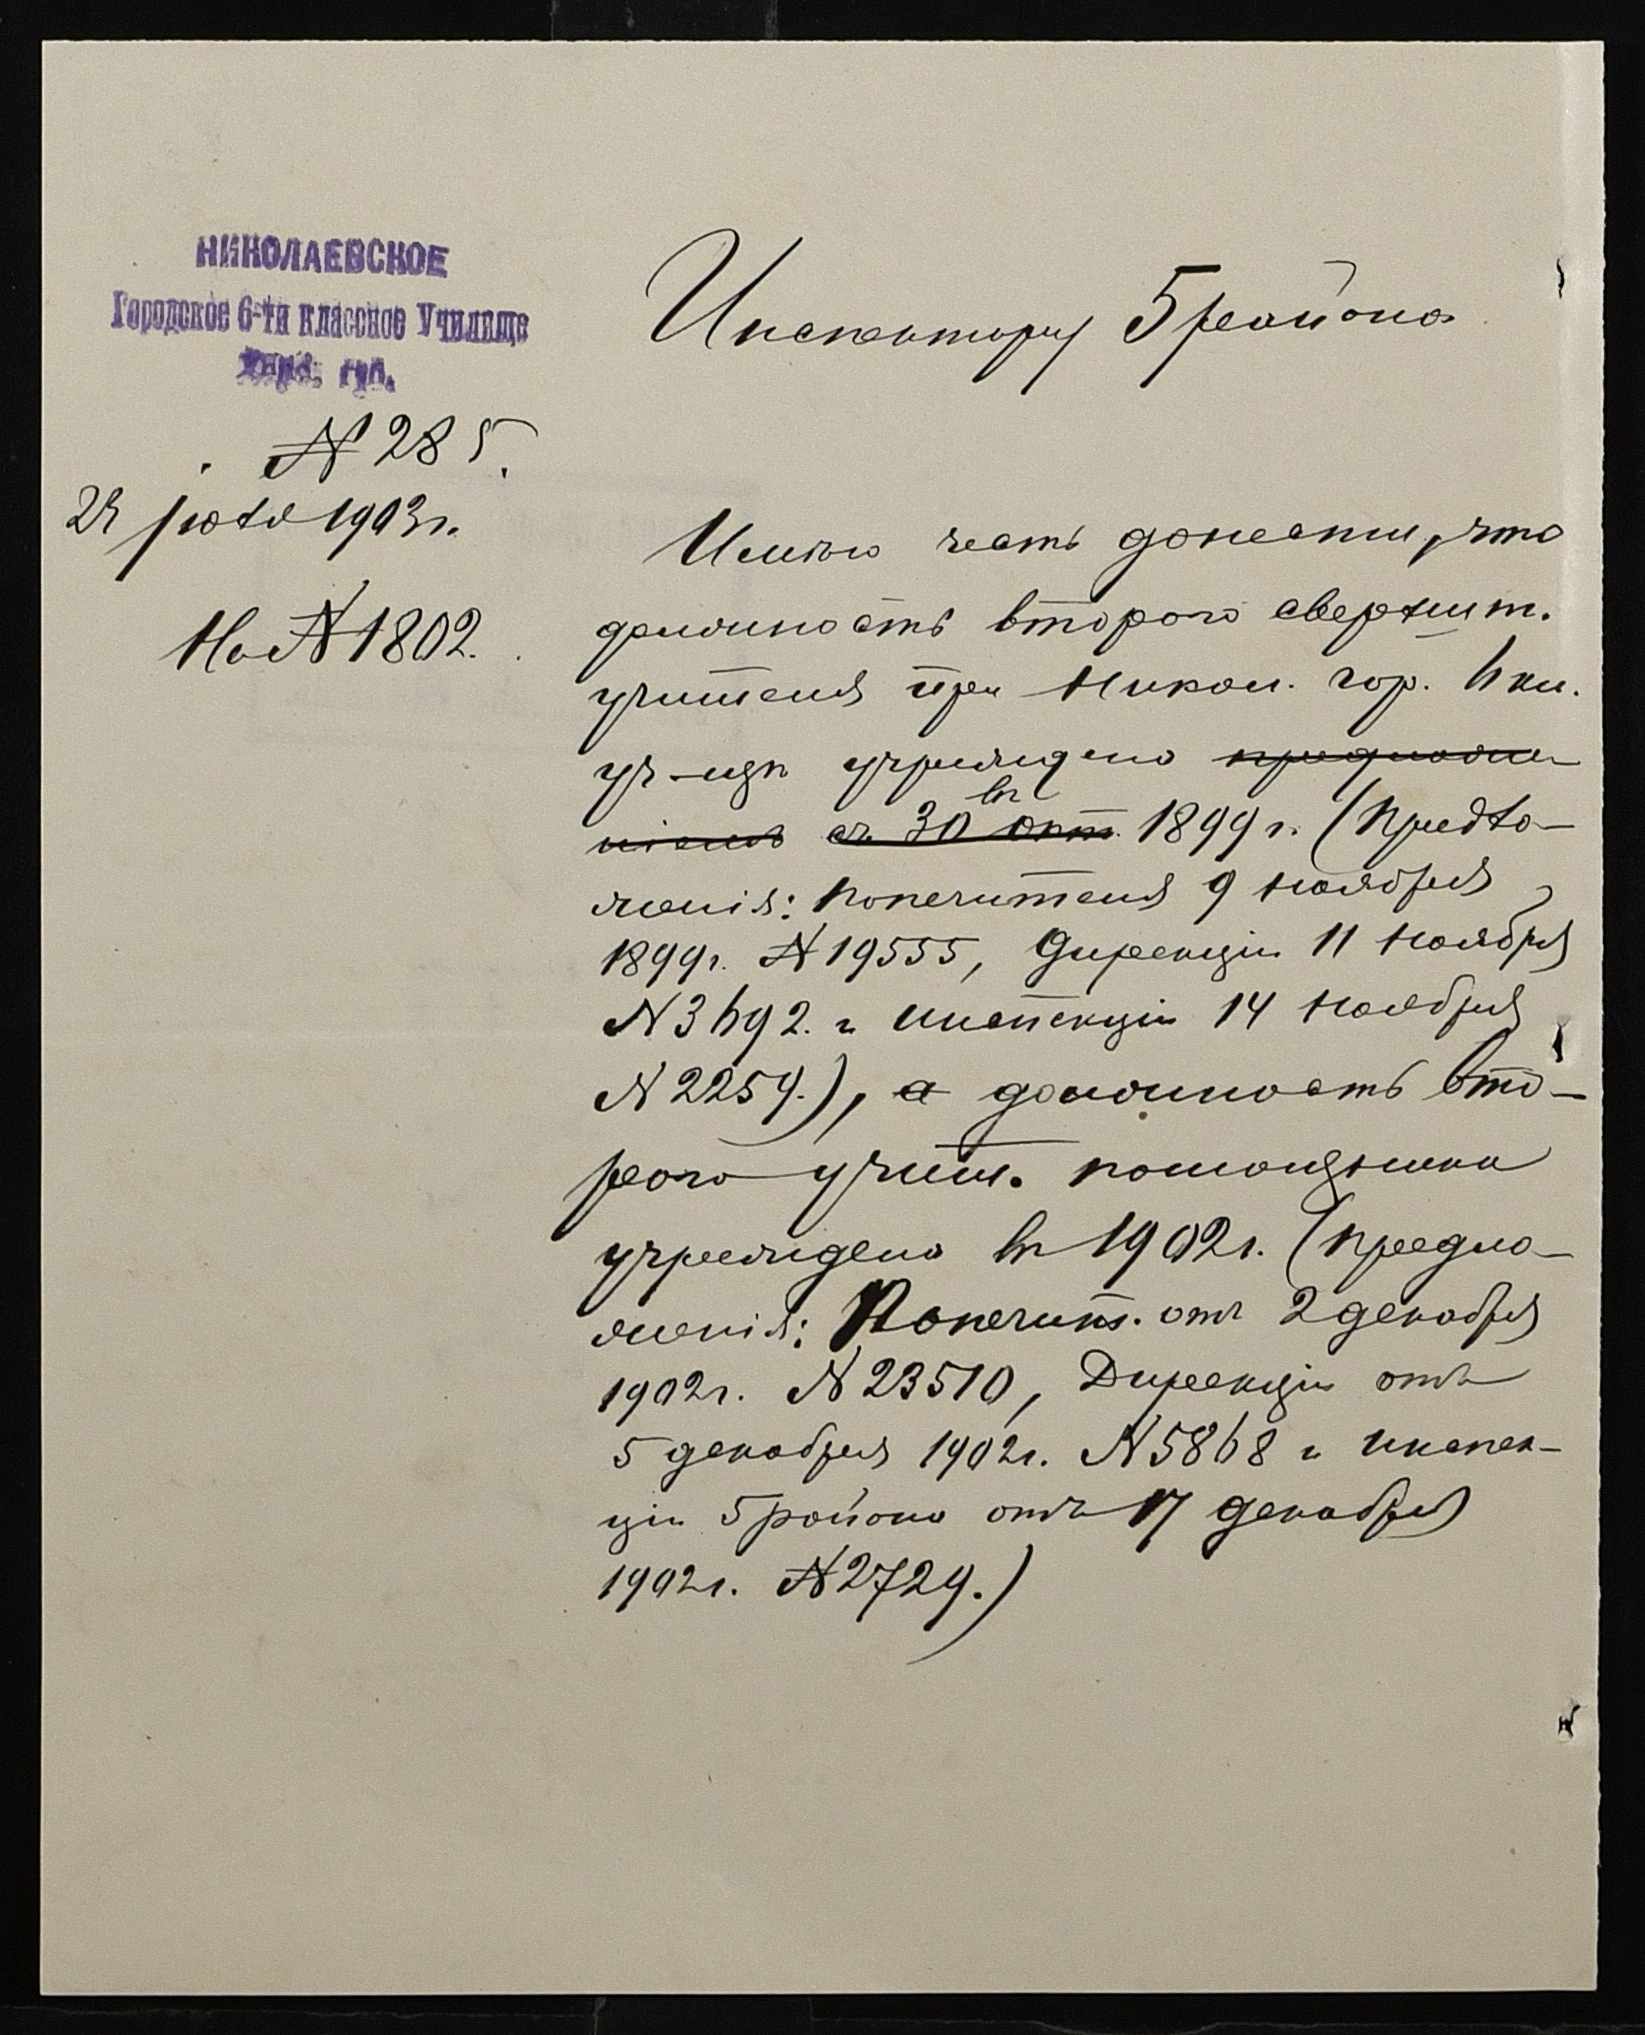 НИКОЛАЕВСКОЕ
Городское 6-ти классное Училище
Херс. губ.
№ 285.
23 іюля 1903 г.
На № 1802.
Инспектору 5 района
Имѣю честь донести, что
должность второго сверхшт.
учителя при Никол. гор. 6 кл.
уч-щѣ учреждена предложе-
ніемъ съ 30 окт. въ 1899 г. (Предло-
женія: Попечителя 9 ноября
1899 г. № 19555, Дирекціи 11 ноября
№ 3692. и инспекціи 14 ноября
№ 2259.), а должность вто-
рого учит. помощника
учреждена въ 1902 г. (предло-
женія: Попечит. отъ 2 декабря
1902 г. № 23510, Дирекціи отъ
5 декабря 1902 г. № 5868 и инспек-
ціи 5 района отъ 17 декабря
1902 г. № 2729.)